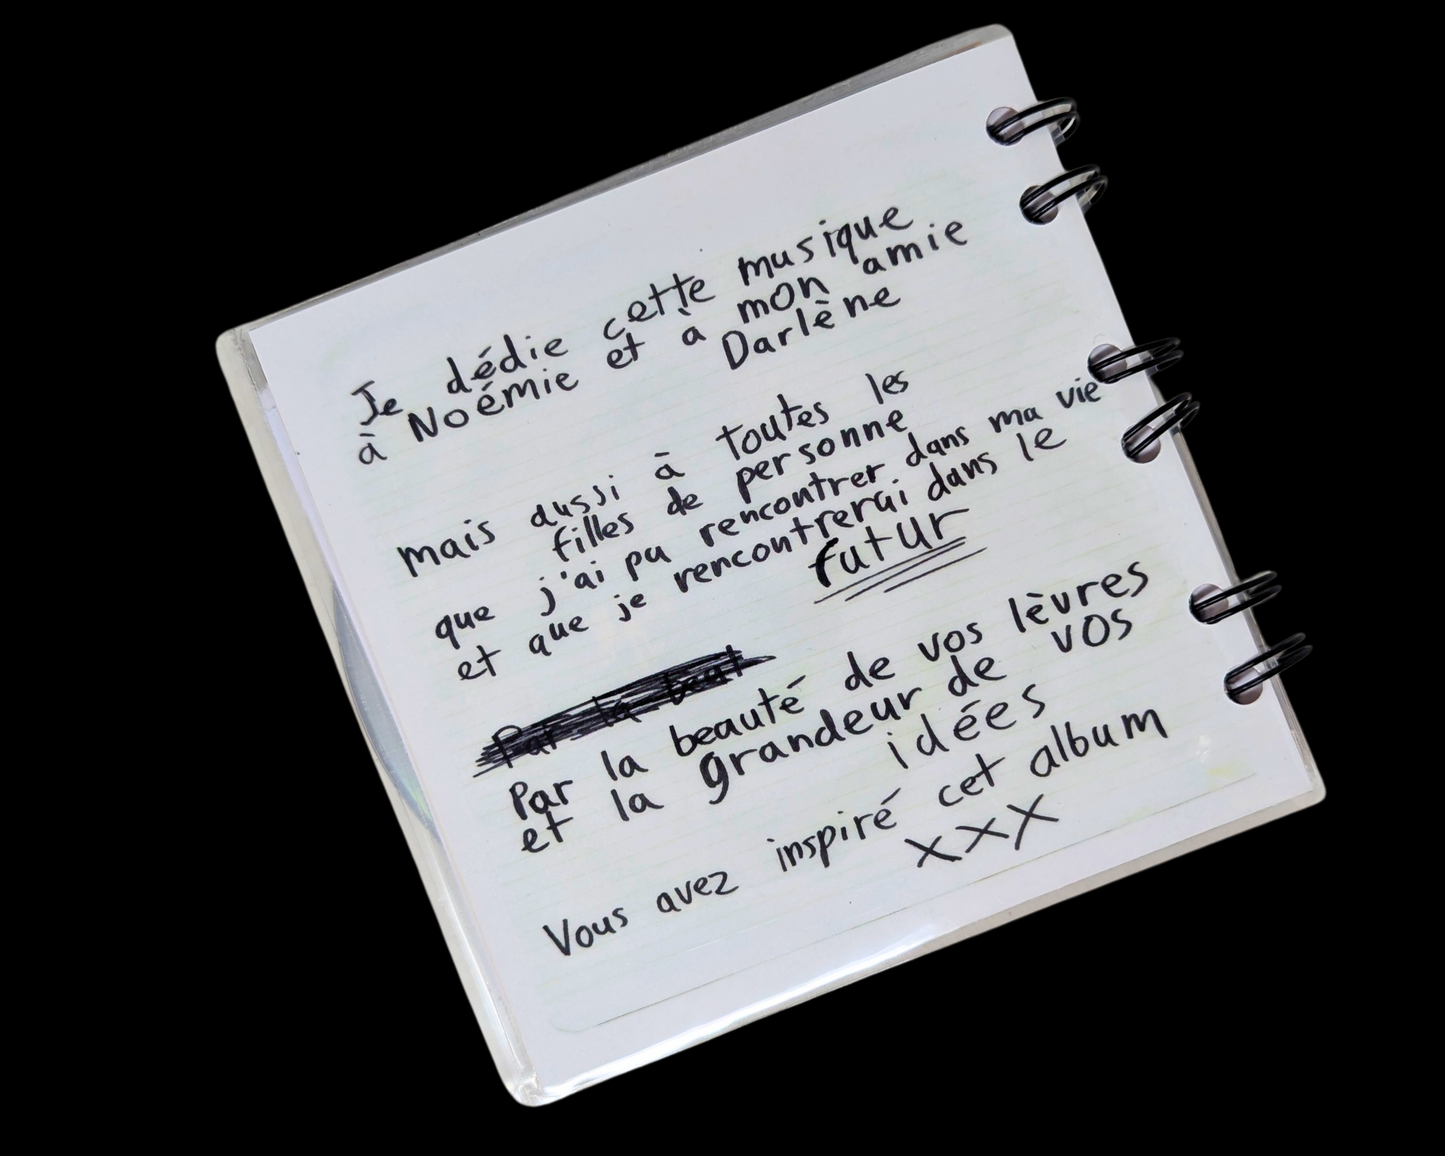 Je dédie cette musique
à Noémie et à mon amie
Darlène
mais aussi à toutes les
filles de personne
que j'ai pu rencontrer dans ma vie
et que je rencontrerai dans le
futur
Par la beaut
Par la beauté de vos lèvres
et la grandeur de vos
idées
Vous avez inspiré cet album
xxx